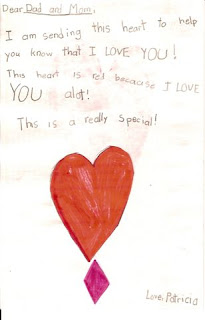 Dear Dad and Mom,
I am sending this heart to help
you know that I LOVE YOU!
This heart is red because I LOVE
YOU alot!
This is a really special!
Love, Patricia